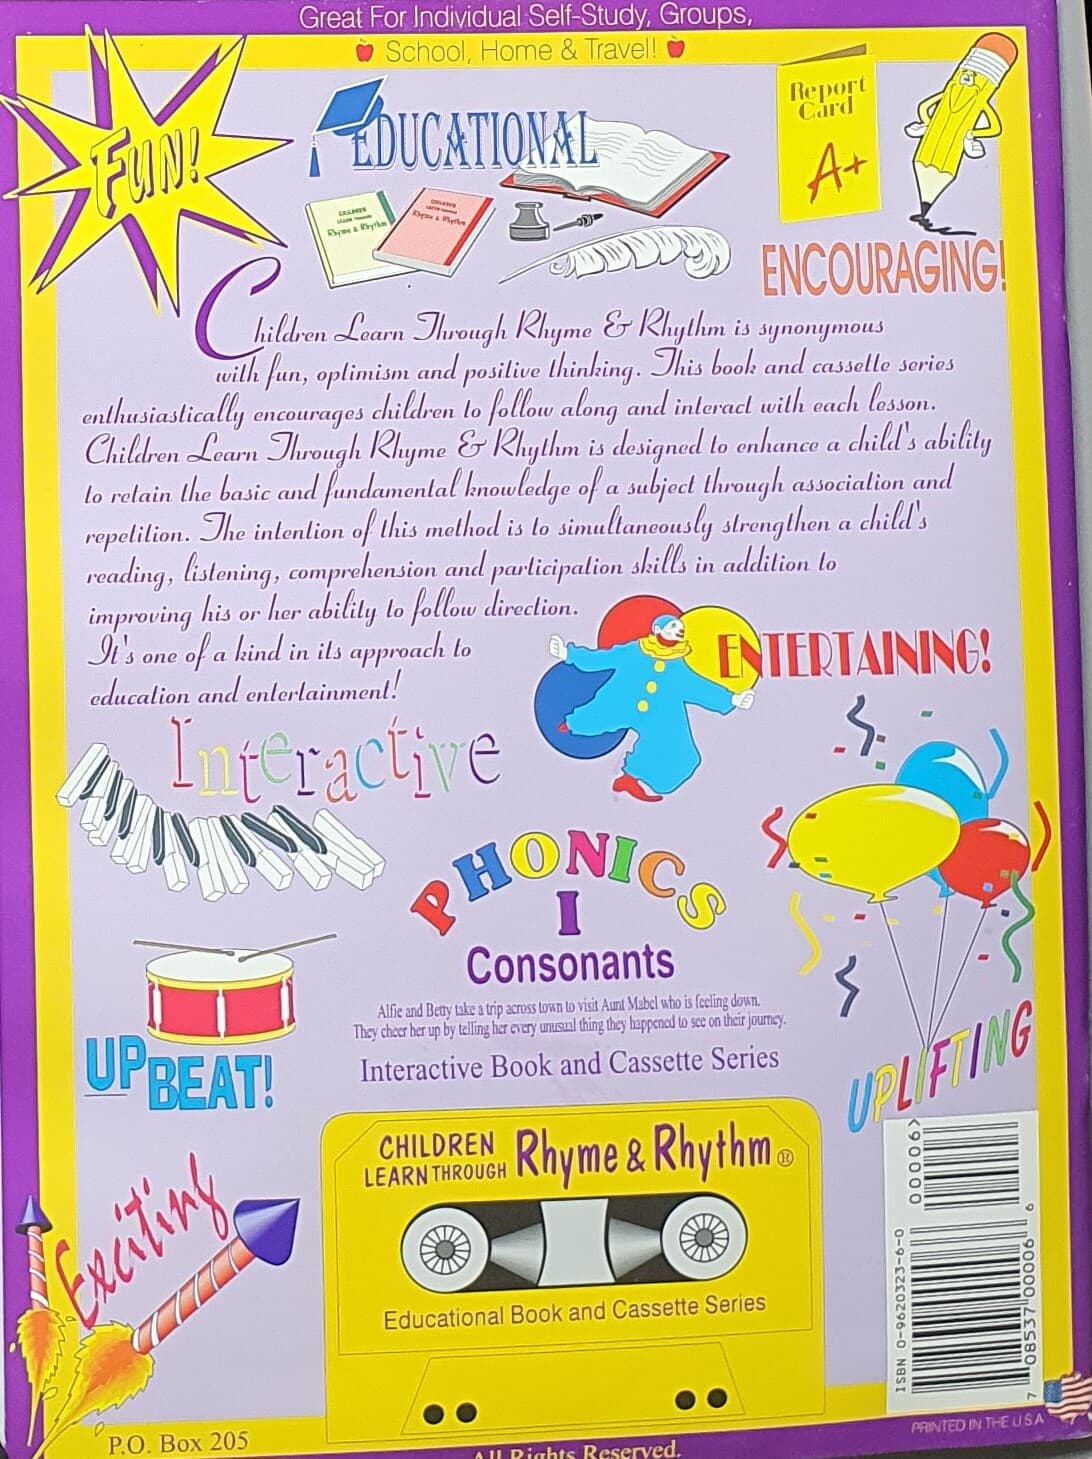 Great For Individual Self-Study, Groups,
School, Home & Travel!
FUN!
EDUCATIONAL
Report
Card
A+
CHILDREN
LEARN THROUGH
Rhyme & Rhythm
CHILDREN
LEARN THROUGH
Rhyme & Rhythm
ENCOURAGING!
Children Learn Through Rhyme & Rhythm is synonymous
with fun, optimism and positive thinking. This book and cassette series
enthusiastically encourages children to follow along and interact with each lesson.
Children Learn Through Rhyme & Rhythm is designed to enhance a child's ability
to retain the basic and fundamental knowledge of a subject through association and
repetition. The intention of this method is to simultaneously strengthen a child's
reading, listening, comprehension and participation skills in addition to
improving his or her ability to follow direction.
It's one of a kind in its approach to
education and entertainment!
ENTERTAINING!
Interactive
PHONICS
I
Consonants
Alfie and Betty take a trip across town to visit Aunt Mabel who is feeling down.
They cheer her up by telling her every unusual thing they happened to see on their journey.
Interactive Book and Cassette Series
UPBEAT!
UPLIFTING
Exciting
CHILDREN
LEARN THROUGH Rhyme & Rhythm®
Educational Book and Cassette Series
00006>
ISBN 0-9620323-6-0
7 08537 00006 6
PRINTED IN THE USA
P.O. Box 205
All Rights Reserved.